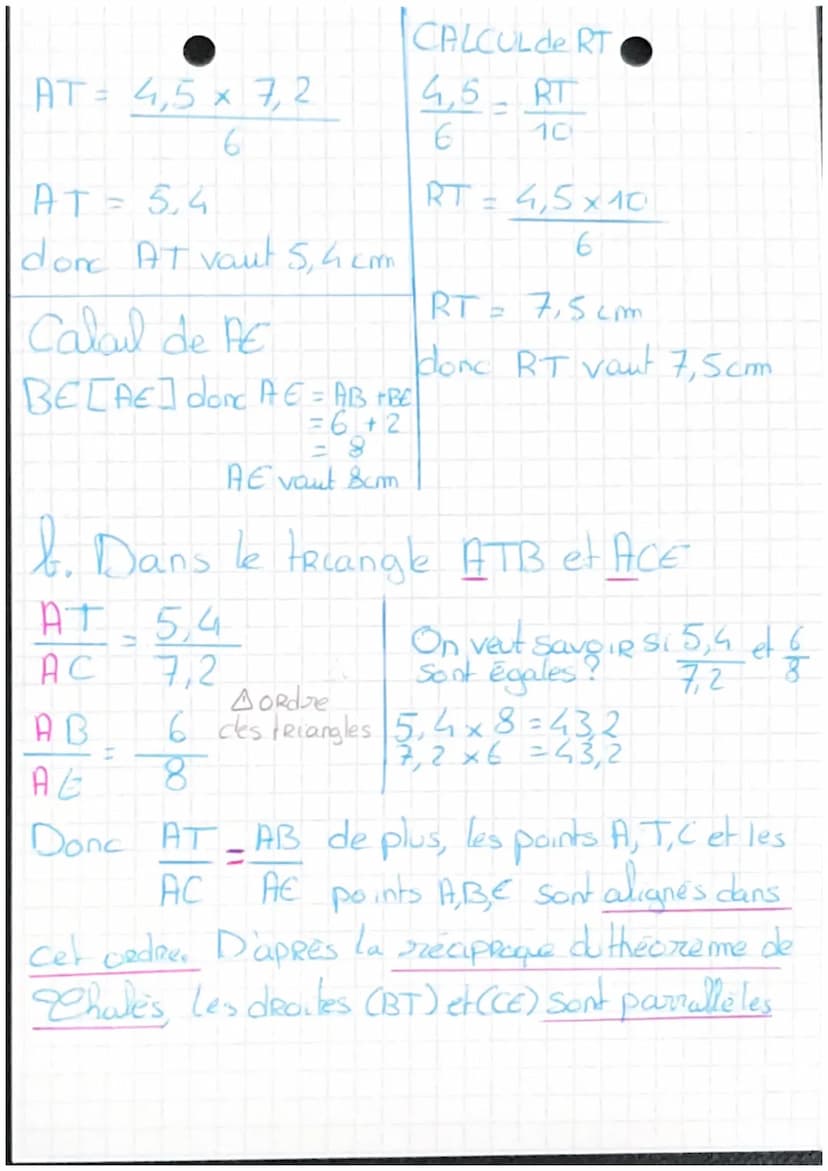 AT = 4,5 × 7,2 / 6
AT = 5,4
donc AT vaut 5,4 cm
Calcul de AE
BE[AE] donc AE = AB + BE
= 6 + 2
= 8
AE vaut 8cm
CALCUL de RT
4,5 / 6 = RT / 10
RT = 4,5 × 10 / 6
RT = 7,5 cm
donc RT vaut 7,5cm
b. Dans le triangle ATB et ACE
AT / AC = 5,4 / 7,2
AB / AE = 6 / 8
⚠ ordre
des triangles
On veut savoir si 5,4 / 7,2 et 6 / 8
sont égales ?
5,4 × 8 = 43,2
7,2 × 6 = 43,2
Donc AT / AC = AB / AE de plus, les points A,T,C et les
points A,B,E sont alignés dans
cet ordre. D'après la réciproque du théorème de
Thalès, les droites (BT) et (CE) sont parralèles